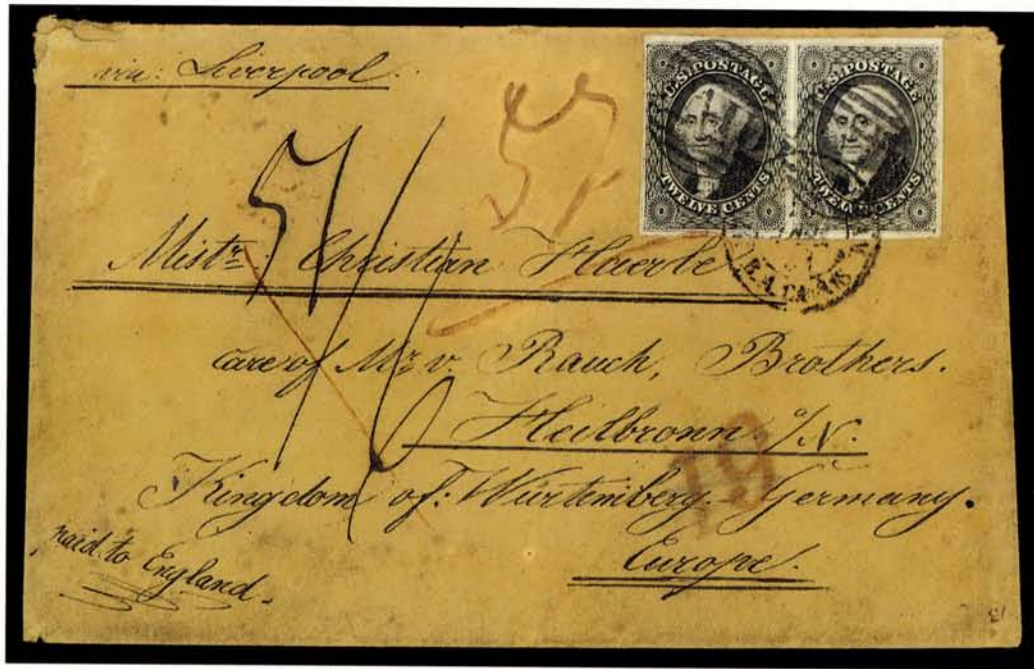 via: Liverpool.
U.S. POSTAGE
TWELVE CENTS
U.S. POSTAGE
TWELVE CENTS
Mistr: Christian Haerle
care of Mr. v. Rauch, Brothers.
Heilbronn a/N.
Kingdom of: Würtemberg. Germany.
Europe.
paid to England.
19